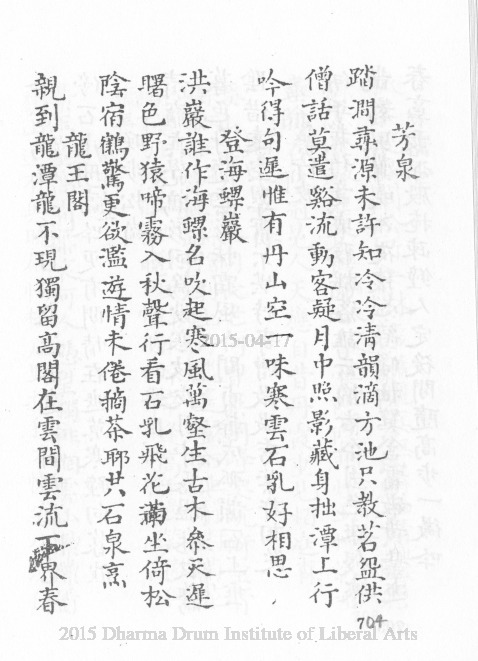 芳泉
踏澗尋源未許知泠泠清韻滴方池只教茗盌供
僧話莫遣谿流動客疑月中照影藏身拙潭上行
吟得句遲惟有丹山空一味寒雲石乳好相思
登海螺巖
洪巖誰作海螺名吹起寒風萬壑生古木參天遲
曙色野猿啼霧入秋聲行看石乳飛花滿坐倚松
陰宿鶴驚更欲濫遊情未倦摘茶聊共石泉烹
龍王閣
親到龍潭龍不現獨留高閣在雲間雲流下界春
704
2015-04-17
2015 Dharma Drum Institute of Liberal Arts